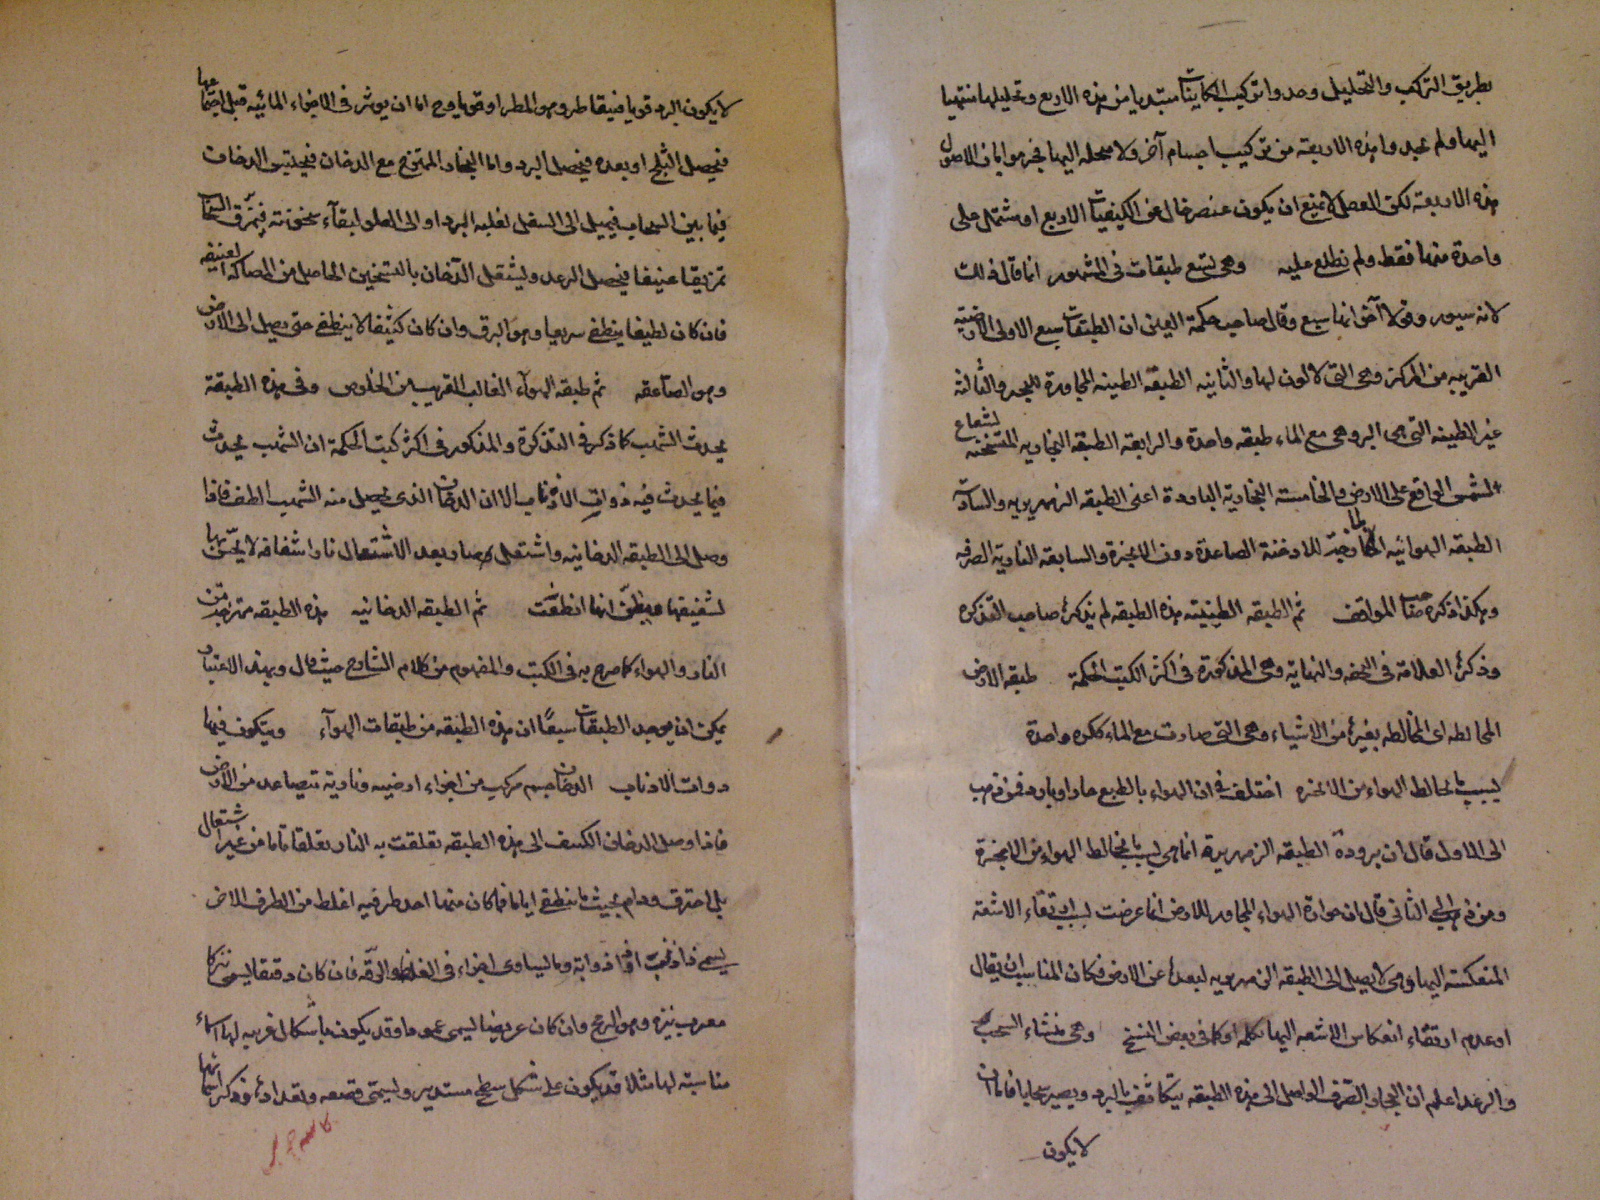 بطريق التركيب والتحليل وجدوا تركيب الكاينات مبتديا من هذه الاربع وتحليلها منتهيا
اليها ولم يجدوا هذه الاربعة من تركيب اجسام آخر ولا منحله اليها فجزموا بان الاصول
هذه الاربعة لكن العقل لا يمنع ان يكون عنصر خال عن الكيفيات الاربع او مشتمل على
واحدة منها فقط ولم نطلع عليه وهى تسع طبقات فى المشهور انما قال ذلك
لانه سيورد قولا آخر انها سبع وقال صاحب حكمة العين ان الطبقات سبع الاولى الارضية
القريبه من المركز وهى التى لا لون لها والثانيه الطبقة الطينيه المجاورة للبحر والثالثة
غير الطينيه التى هى البر وهى مع الماء طبقه واحدة والرابعة الطبقه البخاريه المتسخنة لشعاع
الشمس الواقع على الارض والخامسته البخارية الباردة اعنى الطبقه الزمهريريه والسادسة
الطبقه الهوائيه الممازجة للادخنة الصاعدة دون الابخرة والسابعة النارية الصرفه
وهكذا ذكره صاحب المواقف ثم الطبقه الطينيته هذه الطبقه لم يذكره صاحب التذكره
وذكره العلامة فى التحفه والنهاية وهى المذكورة فى اكثر الكتب الحكمة طبقه الارض
المخالطه اى المخالطه بغيره من الاشياء وهى التى صارت مع الماء ككره واحدة
لسبب ما يخالط الهواء من الابخره اختلف فى ان الهواء بالطبع حار او بارد فمن ذهب
الى الاول قال ان برودة الطبقه الزمهريرة انما هى لسبب ما يخالط الهواء من الابخرة
ومن ذهب الى الثانى قال ان حرارة الهواء المجاور للارض انما عرضت لسبب ارتقاء الاشعة
المنعكسته اليها وهى لا يصل الى الطبقه الزمهريريه لبعده عن الارض فكان المناسب ان يقال
او عدم ارتقاء انعكاس الاشعه اليها بكله او كما فى بعض النسخ وهى منشاء السحب
والرعد اعلم ان البخار الصرف الواصل الى هذه الطبقه يتكاثف بالبرد ويصير سحابا فاما ان
لا يكون
لا يكون البرد قويا فيتقاطر وهو المطر او قويا وح اما ان يوثر فى الاجزاء المائيه قبل اجتماعها
فيحصل الثلج او بعده فيحصل البرد واما البخار الممتزج مع الدخان فيحتبس الدخان
فيما بين السحاب فيميل الى السفل لغلبه البرد او الى العلو لبقاء سخونته فيمزق السحاب
تمزيقا عنيفا فيحصل الرعد ويشتعل الدخان بالتسخين الحاصل من المصاكه العنيفه
فان كان لطيفا ينطفى سريعا وهو البرق وان كان كثيفا لا ينطفى حتى يصل الى الارض
وهو الصاعقه ثم طبقه الهوآء الغالب القريب من الخلوص وفى هذه الطبقة
يحدث الشهب كما ذكر فى التذكرة والمذكور فى اكثر كتب الحكمة ان الشهب يحدث
فيما يحدث فيه ذوات الاذناب الا ان الدخان الذى يحصل منه الشهب الطف فاذا
وصل الى الطبقه الدخانيه واشتعل وصار بعد الاشتعال نارا شفافه لا يحس بها
لشفيفها فيظن انها انطفت ثم الطبقه الدخانيه هذه الطبقه ممتزجة من
النار والهواء كما صرح به فى الكتب والمفهوم من كلام الشارح حيث قال وبهذا الاعتبار
يمكن ان يوجد الطبقات سبعًا ان هذه الطبقه من طبقات الهوآء ويتكون فيها
دوات الاذناب الدخان جسم مركب من اجزاء ارضيه ونارية تتصاعد من الارض
فاذا وصل الدخان الكثيف الى هذه الطبقه تعلقت به النار تعلقا تاما من غير اشتعال
بل احترق ودام بحيث ما ينطفى اياما فما كان منها احد طرفيه اغلظ من الطرف الاخر
يسمى ذا ذنب او ذا ذوابة وما يساوى اجزاء فى الغلظ والرقه فان كان دقيقا يسمى نيزكا
معرب نيزه وهو الرمح وان كان عريضا يسمى عمودا وقد يكون باشكال غريبه لها اسماء
مناسبته لها مثلا قد يكون على شكل سطح مستدير ويسمى قصعه ولقد ادى وذكر اسمائها